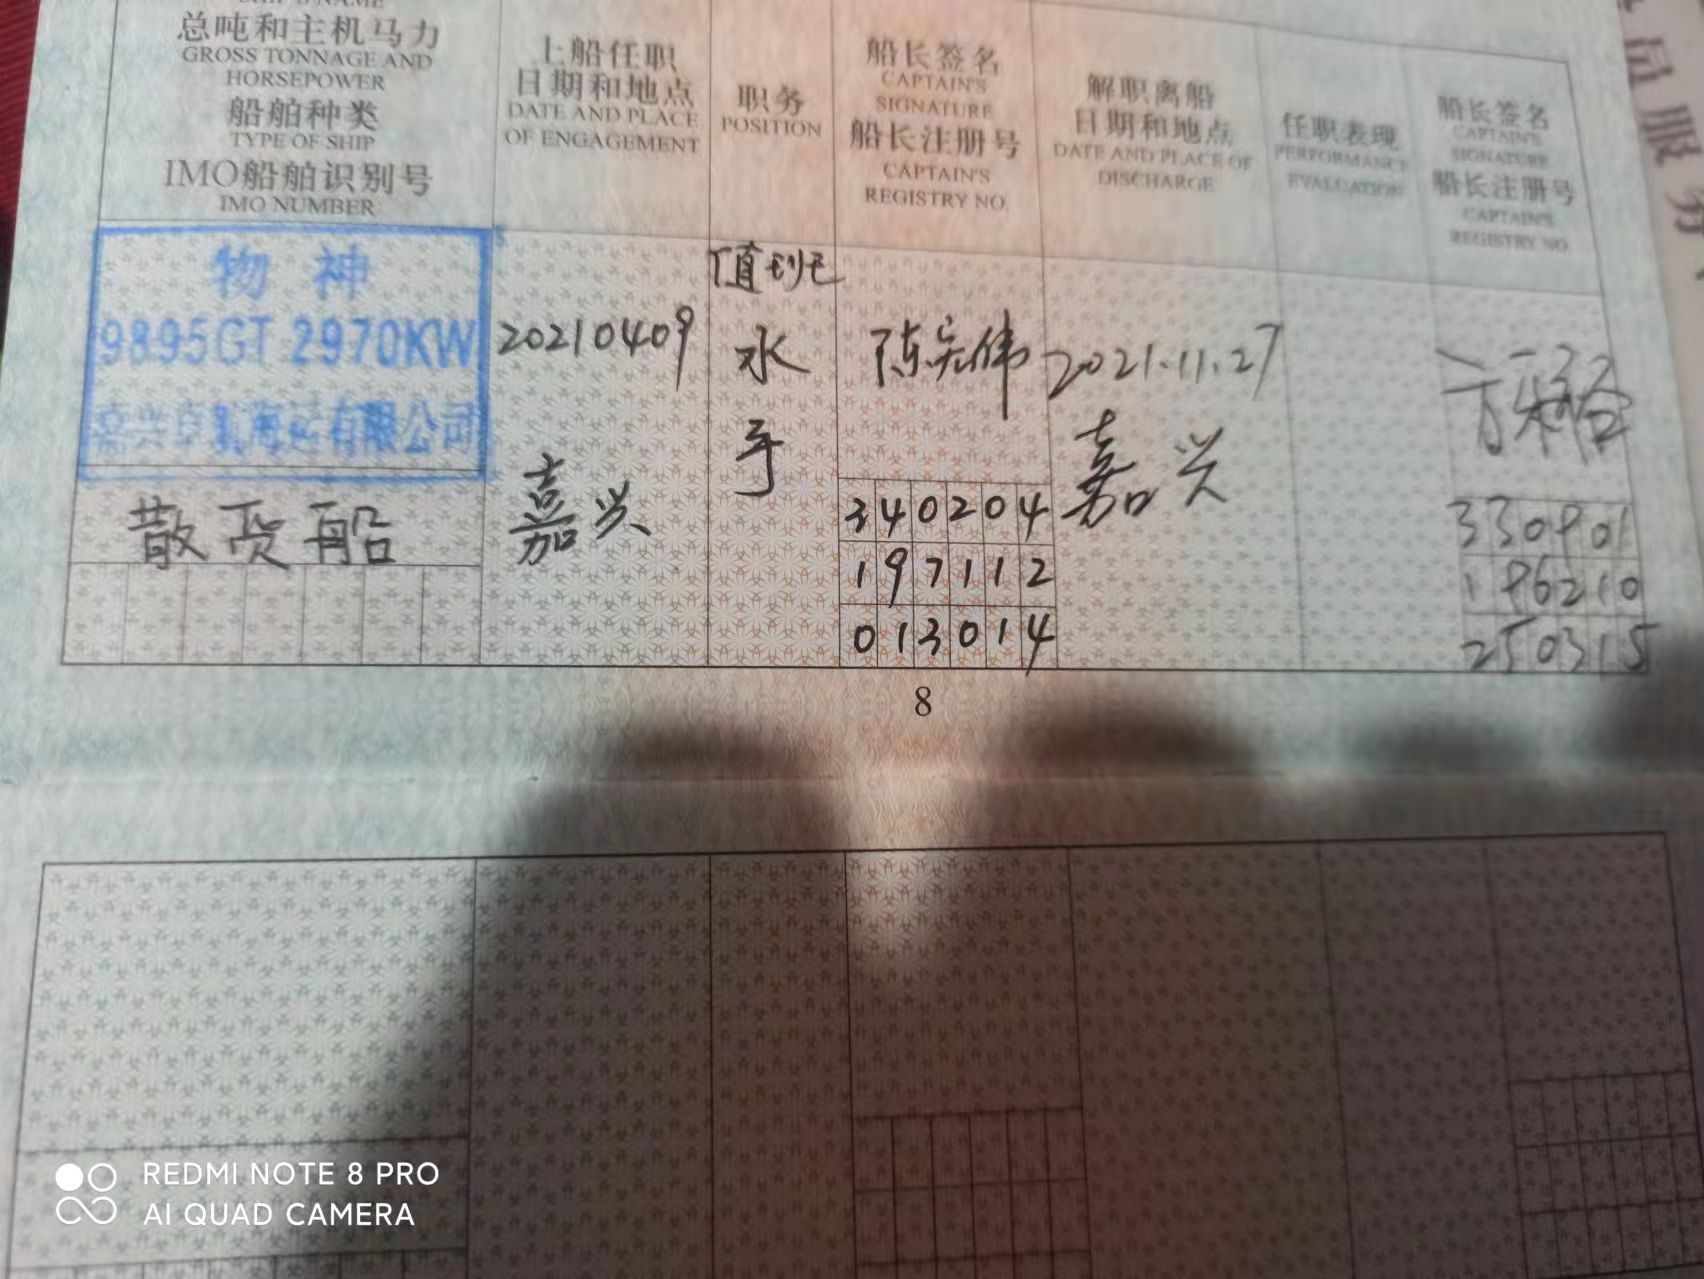 SHIP'S NAME
总吨和主机马力
GROSS TONNAGE AND
HORSEPOWER
船舶种类
TYPE OF SHIP
IMO船舶识别号
IMO NUMBER
上船任职
日期和地点
DATE AND PLACE
OF ENGAGEMENT
职务
POSITION
船长签名
CAPTAIN'S
SIGNATURE
船长注册号
CAPTAIN'S
REGISTRY NO.
解职离船
日期和地点
DATE AND PLACE OF
DISCHARGE
任职表现
PERFORMANCE
EVALUATION
船长签名
CAPTAIN'S
SIGNATURE
船长注册号
CAPTAIN'S
REGISTRY NO
员服务
物神
9895GT 2970KW
嘉兴 海运有限公司
散货船
20210409
嘉兴
值班
水
手
陈宏伟
340204
197112
013014
2021.11.27
嘉兴
330901
196210
250315
8
REDMI NOTE 8 PRO
AI QUAD CAMERA